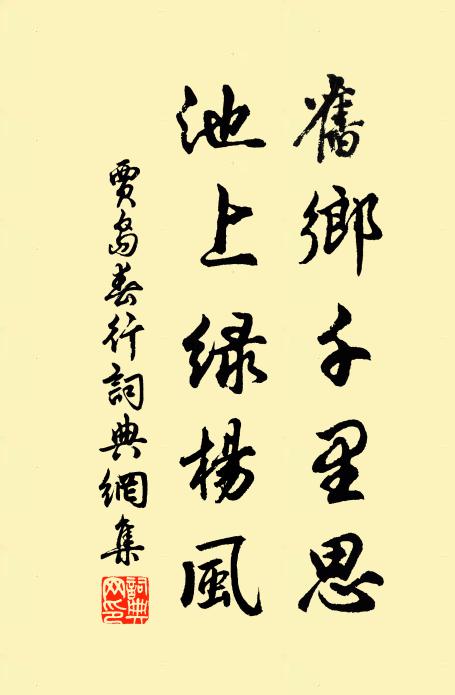 舊鄉千里思
池上緑楊風
賈島春行詞典網集
詞典网印